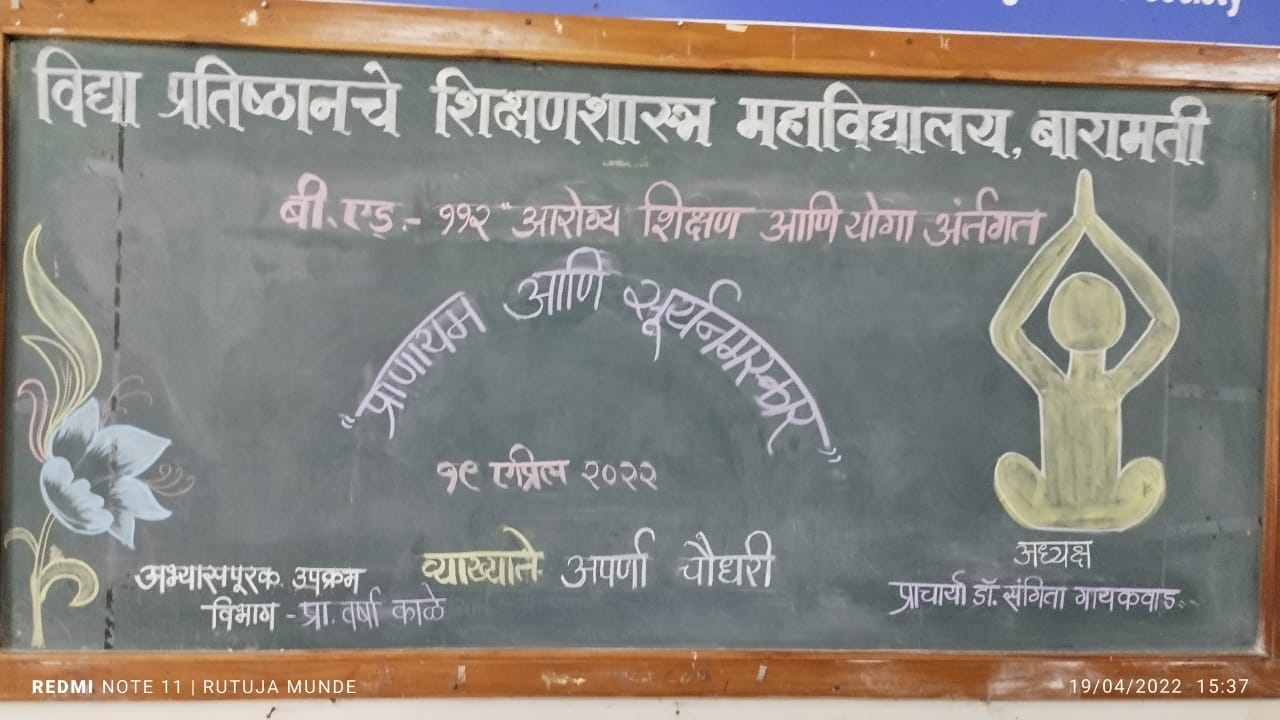 विद्या प्रतिष्ठानचे शिक्षणशास्त्र महाविद्यालय, बारामती
बी.एड्.- ११२ "आरोग्य शिक्षण आणि योगा अंर्तगत
"प्राणायम आणि सूर्यनमस्कार"
१९ एप्रिल २०२२
व्याख्याते- अपर्णा चौधरी
अभ्यासपूरक उपक्रम
विभाग - प्रा. वर्षा काळे
अध्यक्ष
प्राचार्या डॉ. संगिता गायकवाड
REDMI NOTE 11 | RUTUJA MUNDE
19/04/2022 15:37